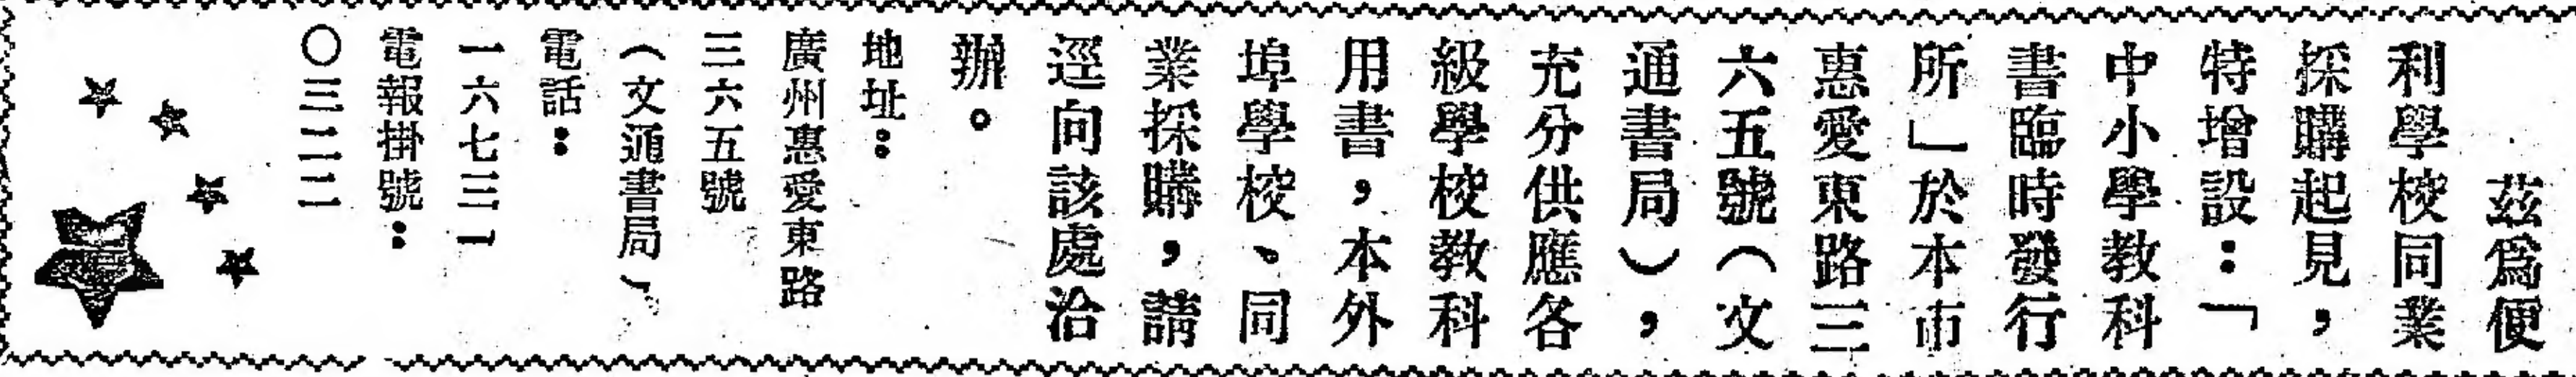 茲爲便
利學校同業
採購起見，
特增設：「
中小學教科
書臨時發行
所」於本市
惠愛東路三
六五號（文
通書局），
充分供應各
級學校教科
用書，本外
埠學校、同
業採購，請
逕向該處洽
辦。
地址：
廣州惠愛東路
三六五號
（文通書局）
電話：
一六七三一
電報掛號：
〇三二二